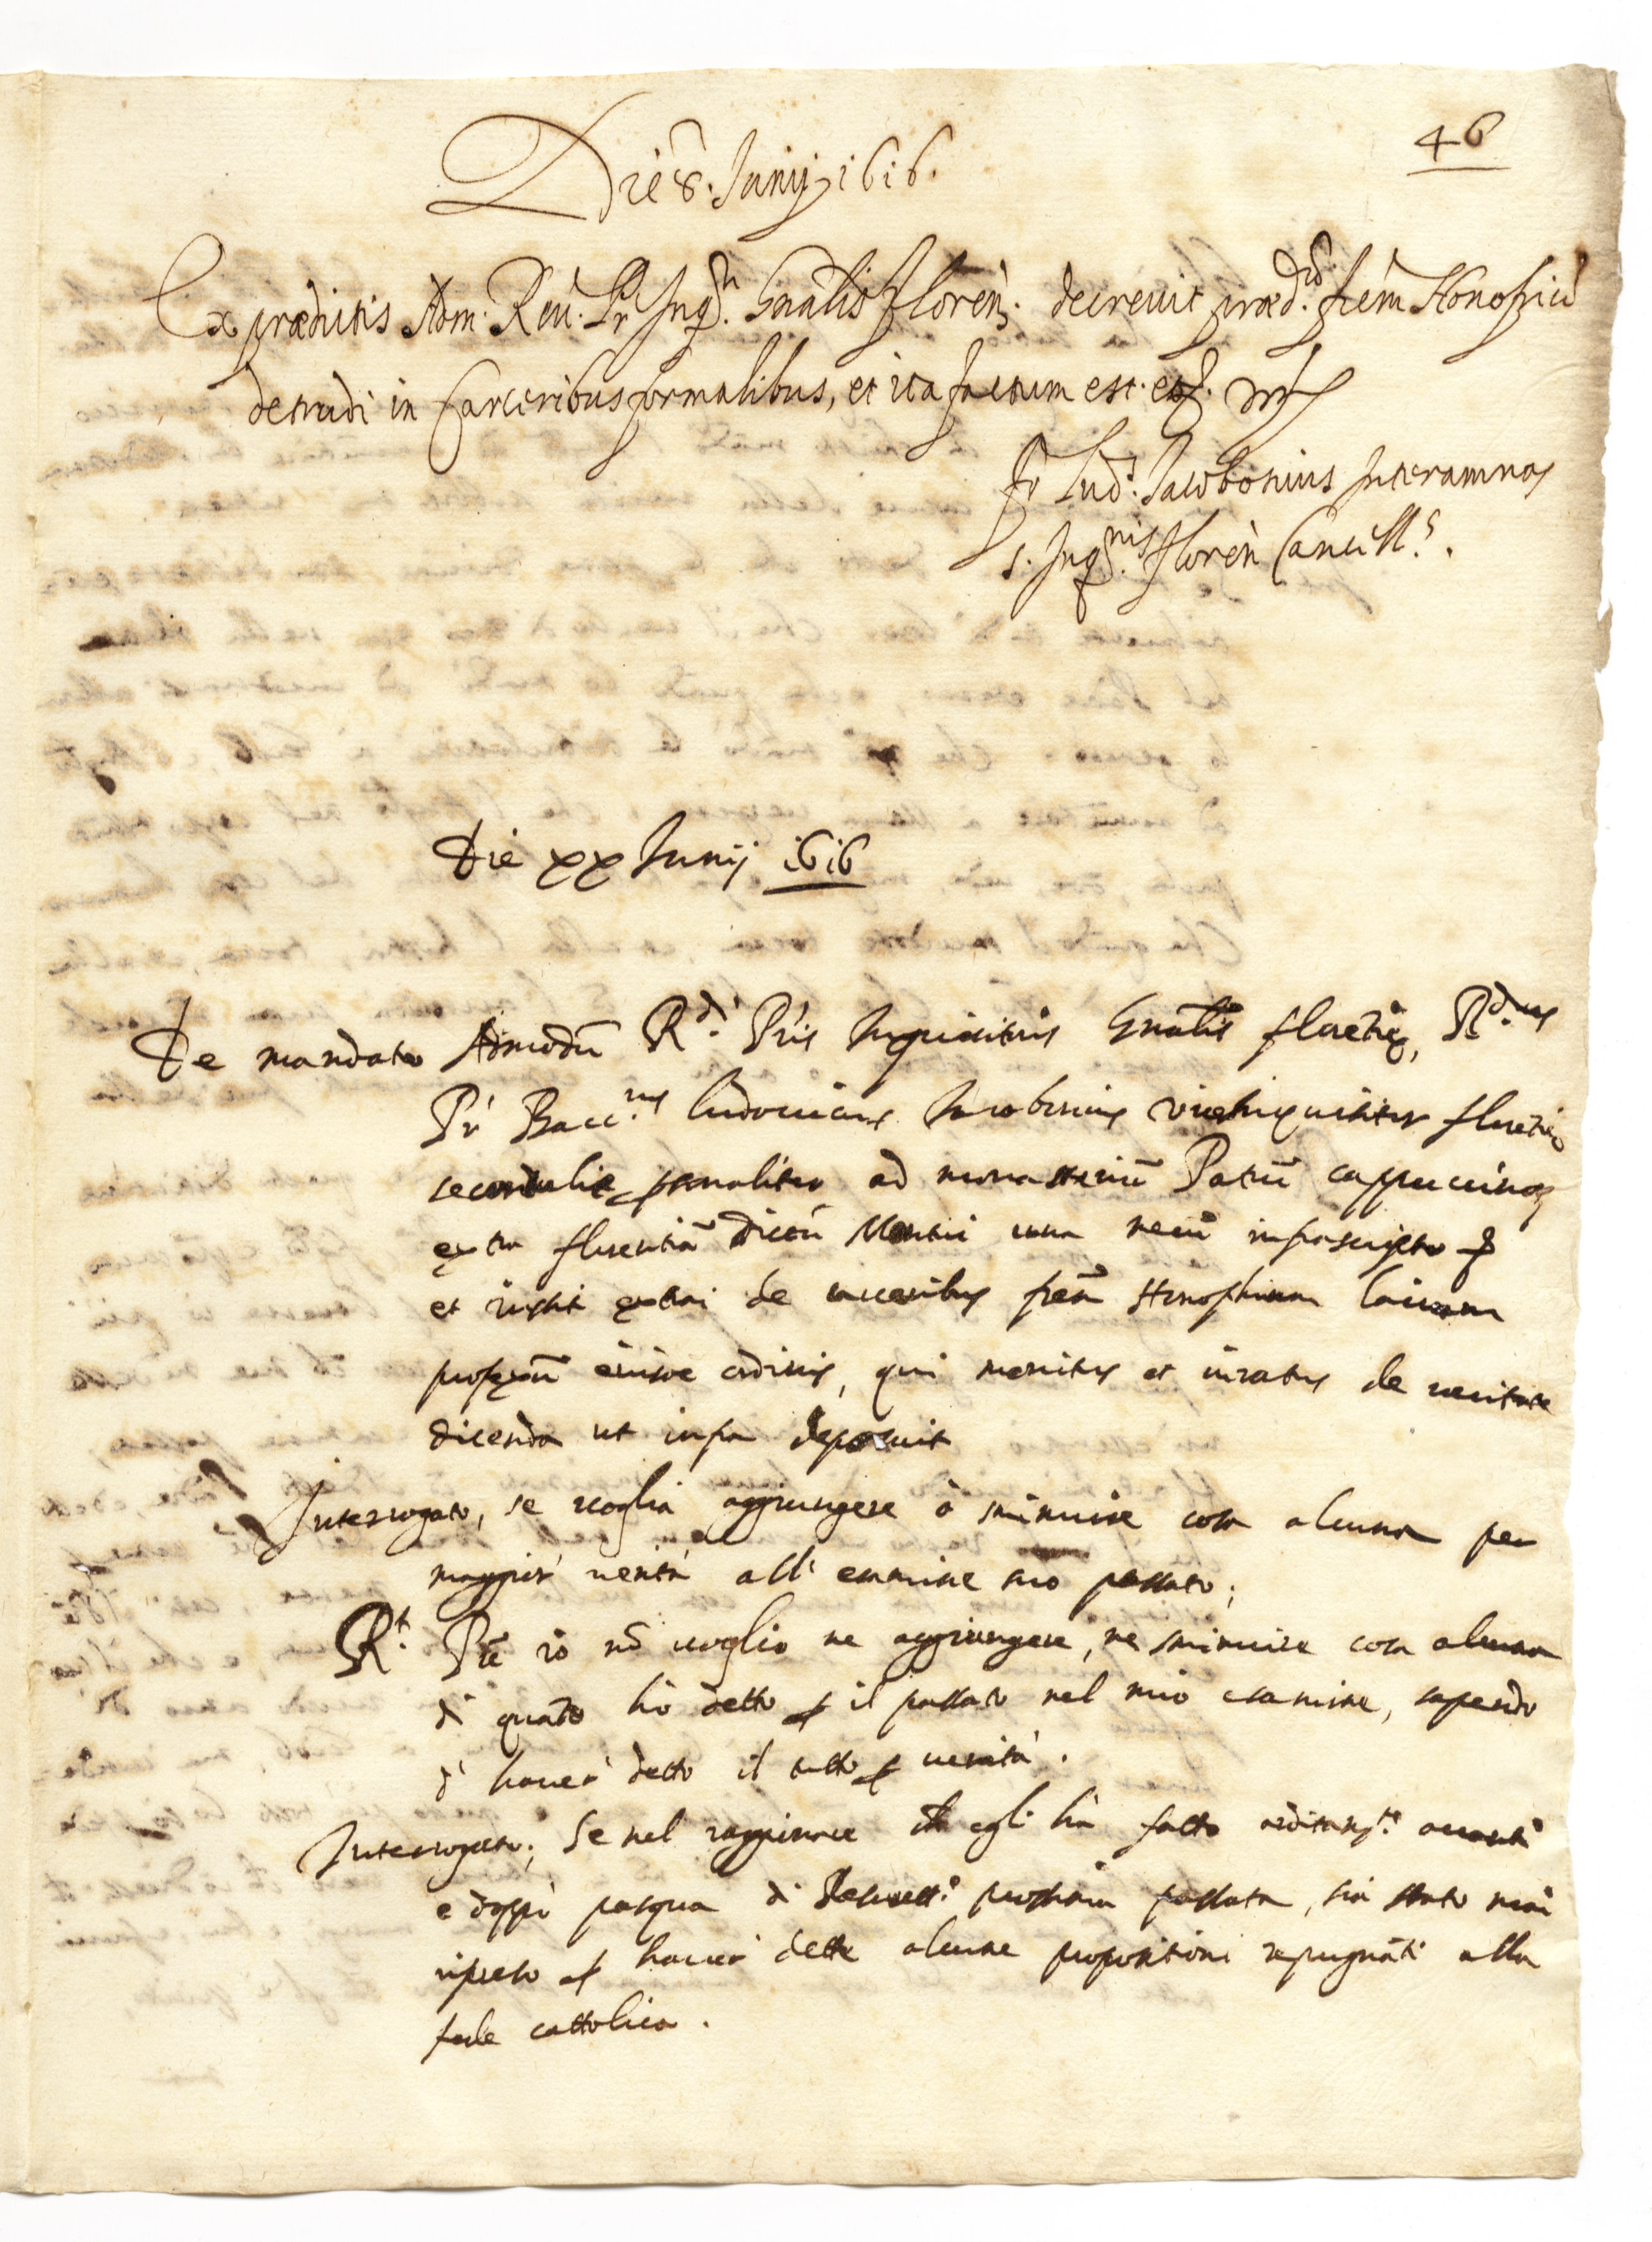 46
Die 8. Junij 1616.
Ex prædictis Adm. Reu. Pr Inqr. Gnalis Floren. decreuit præd.m frem Honofriũ
detrudi in Carceribus formalibus, et ita factum est.
fr Lud.s Jacobonius Interamnas
s. Inq.nis Floren Cancell.s.
Die xx Junij 1616
De mandato Admodũ R.di Pris Inquisitoris Gnalis floretię, R.dus
Pr Bacc.rus Ludouicus Jacobonius viceinquisitor floretię
psonaliter ad monasteriũ Patrũ cappuccinoꝝ
extra florentiã dictũ Montui una mecũ infrascripto
et iussit extrai de carceribus frem Honophrium laicum
professũ eiusde ordinis, qui monitus et iuratus de ueritate
dicenda ut infra deposuit
Interrogato, se uoglia aggiungere ò sminuire cosa alcuna per
maggior uerità all' esamine suo passato;
R.t Pre io nõ uoglio ne aggiungere, ne sminuire cosa alcuna
di quãto hò detto ꝑ il passato nel mio esamine, sapendo
d' hauer' detto il tutto ꝑ uerità.
Interrogato; Se nel raggionare ch egli hà fatto auanti
e doppò pasqua di prossima passata, sia stato mai
ripreso ꝑ hauer' dette alcune propositioni repugnãti alla
fede cattolica.